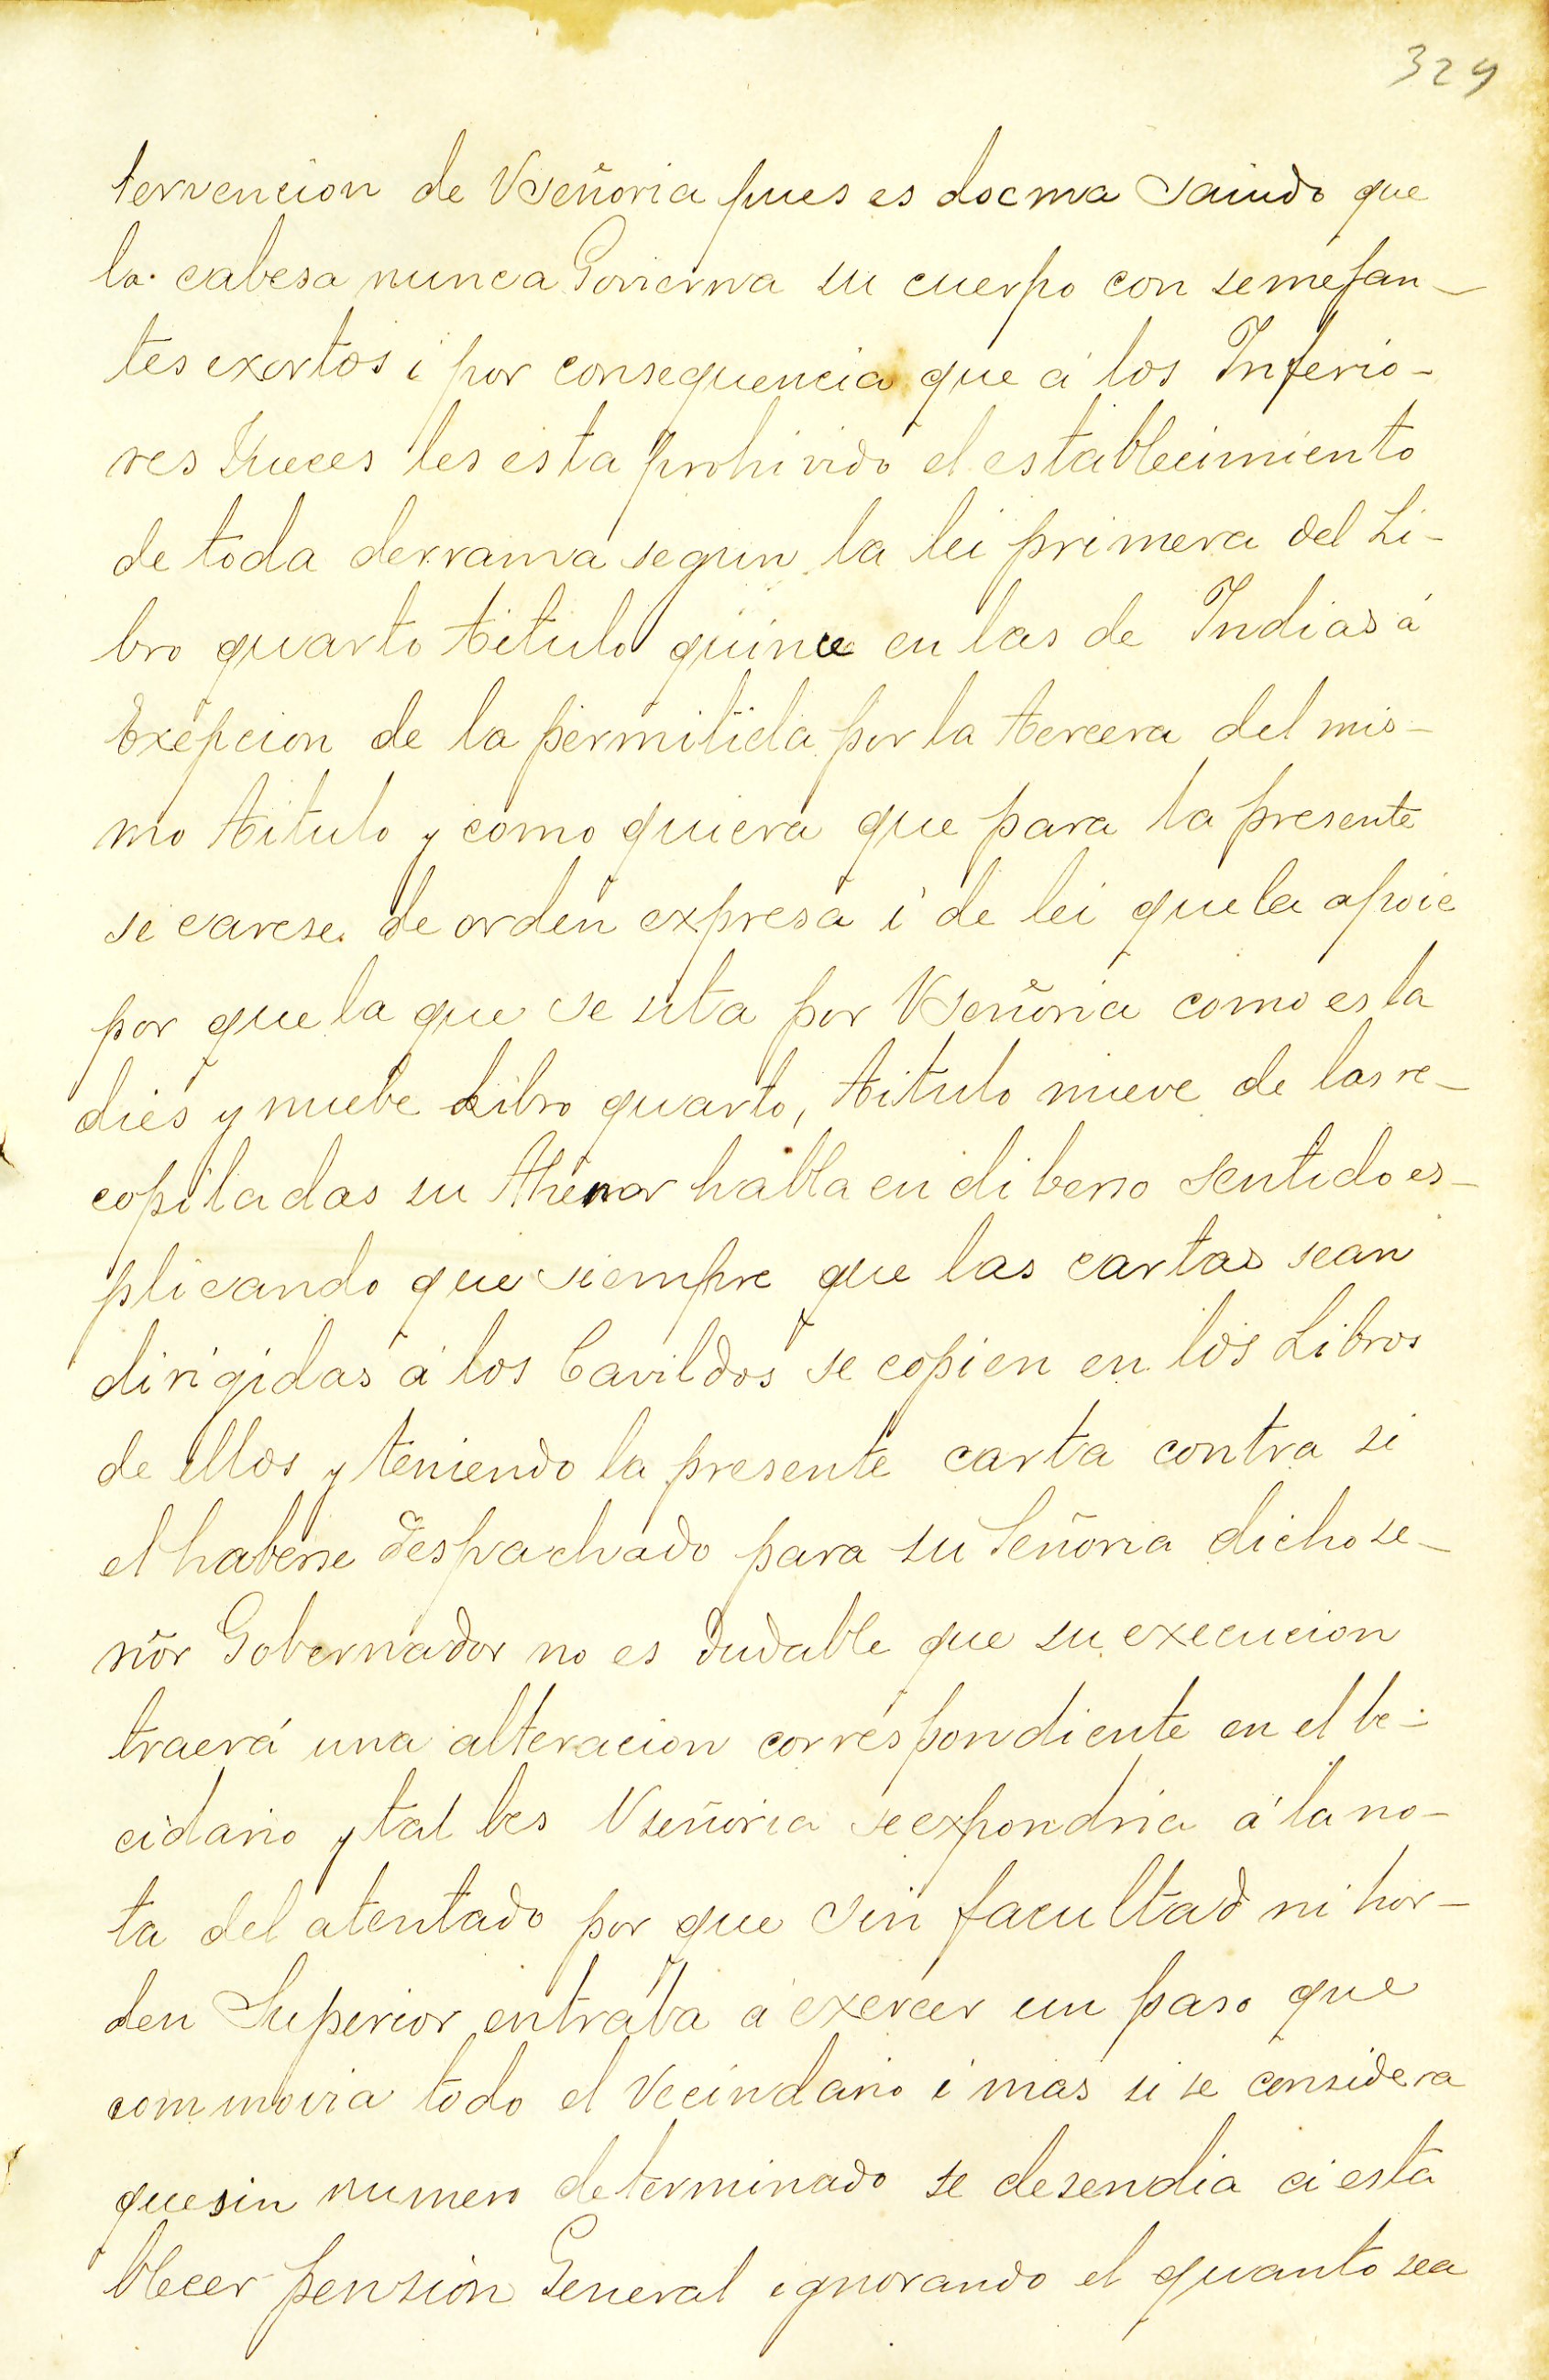 329
tervencion de Vseñoria pues es docma saiudo que
la cabesa nunca Govierna su cuerpo con semejan-
tes exortos i por consequencia que á los Inferio-
res Jueces les esta prohivido el establecimiento
de toda derrama segun la lei primera del Li-
bro quarto titulo quince en las de Indias á
Exepcion de la permitida por la tercera del mis-
mo titulo y como quiera que para la presente
se carese de orden expresa i de lei que la apoie
por que la que se sita por Vseñoria como es la
dies y nuebe Libro quarto, titulo nueve de las re-
copiladas su thenor habla en diberso sentido es-
plicando que siempre que las cartas sean
dirigidas á los Cavildos se copien en los Libros
de ellos y teniendo la presente carta contra si
el haberse despachado para su Señoria dicho se-
ñor Gobernador no es dudable que su execucion
traerá una alteracion correspondiente en el be-
cidario y tal bes Vseñoria se expondria á la no-
ta del atentado por que sin facultad ni hor-
den Superior entraba a exercer un paso que
commovia todo el Vecindario i mas si se considera
que sin numero determinado se desendia a esta
blecer pension General ignorando el quanto sea